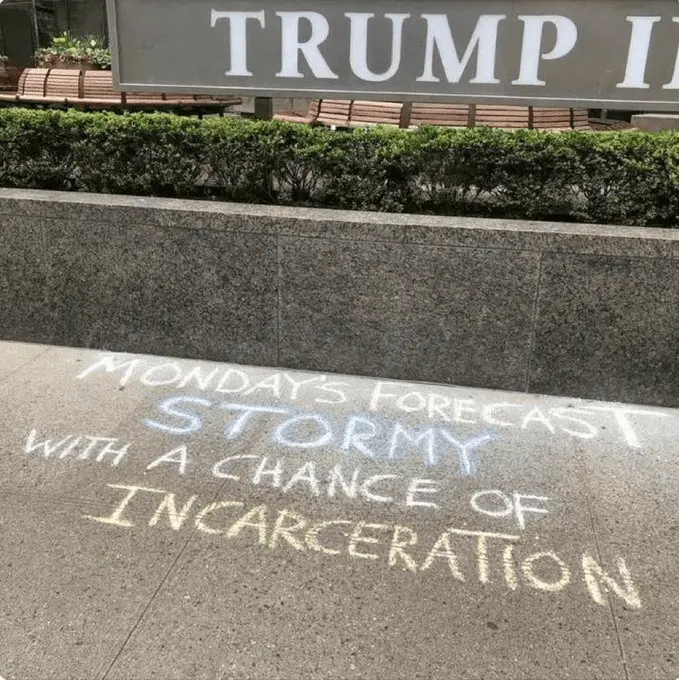 TRUMP
MONDAY'S FORECAST
STORMY
WITH A CHANCE OF
INCARCERATION